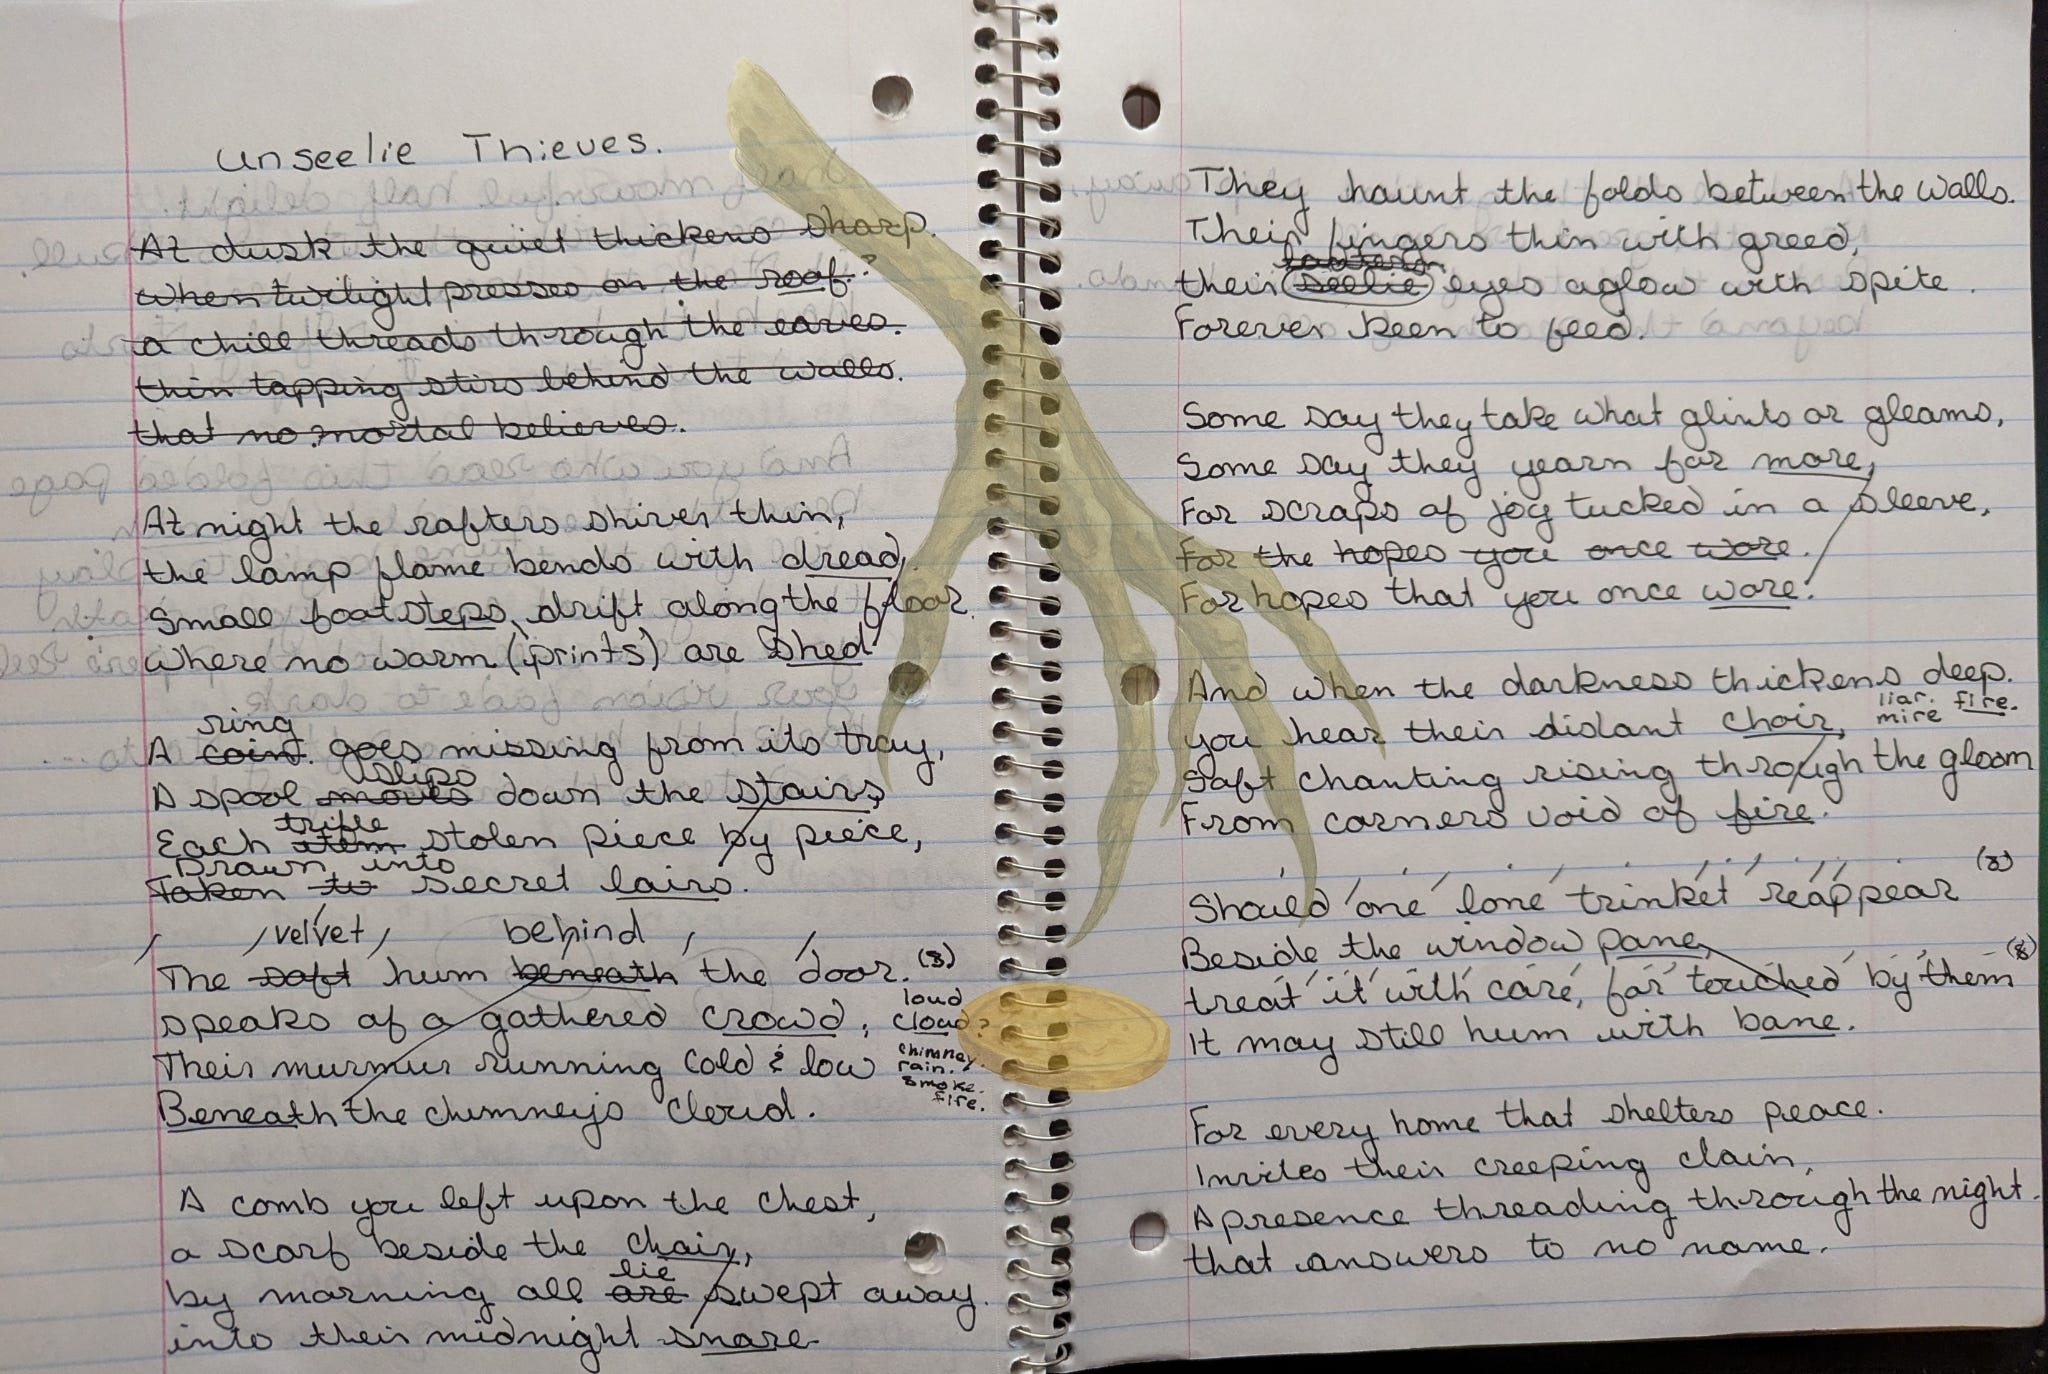 Unseelie Thieves.
At dusk the quiet thickens sharp.
when twilight presses on the roof.?
a chill threads through the eaves.
thin tapping stirs behind the walls.
that no mortal believes.
At night the rafters shiver thin,
the lamp flame bends with dread,
Small footsteps drift along the floor.
where no warm (prints) are shed
ring
A coin goes missing from its tray,
slips
A spool moves down the stairs,
trifle
Each item stolen piece by piece,
Drawn into
Taken to secret lairs.
velvet behind
The soft hum beneath the door. (8)
loud
speaks of a gathered crowd, cloud?
chimney.
Their murmur running cold & low rain.
smoke.
fire.
Beneath the chimneys cloud.
A comb you left upon the chest,
a scarf beside the chair,
lie
by morning all are swept away.
into their midnight snare
They haunt the folds between the walls.
Their fingers thin with greed,
lantern
their seelie eyes aglow with spite.
Forever keen to feed.
Some say they take what glints or gleams,
Some say they yearn for more,
For scraps of joy tucked in a sleeve,
For the hopes you once wore.
For hopes that you once wore.
And when the darkness thickens deep.
liar. fire.
you hear their distant choir, mire
Soft chanting rising through the gloom
From corners void of fire.
Should one lone trinket reappear (8)
Beside the window pane,
treat it with care, for touched by them (8)
It may still hum with bane.
For every home that shelters peace.
Invites their creeping claim,
A presence threading through the night.
that answers to no name.